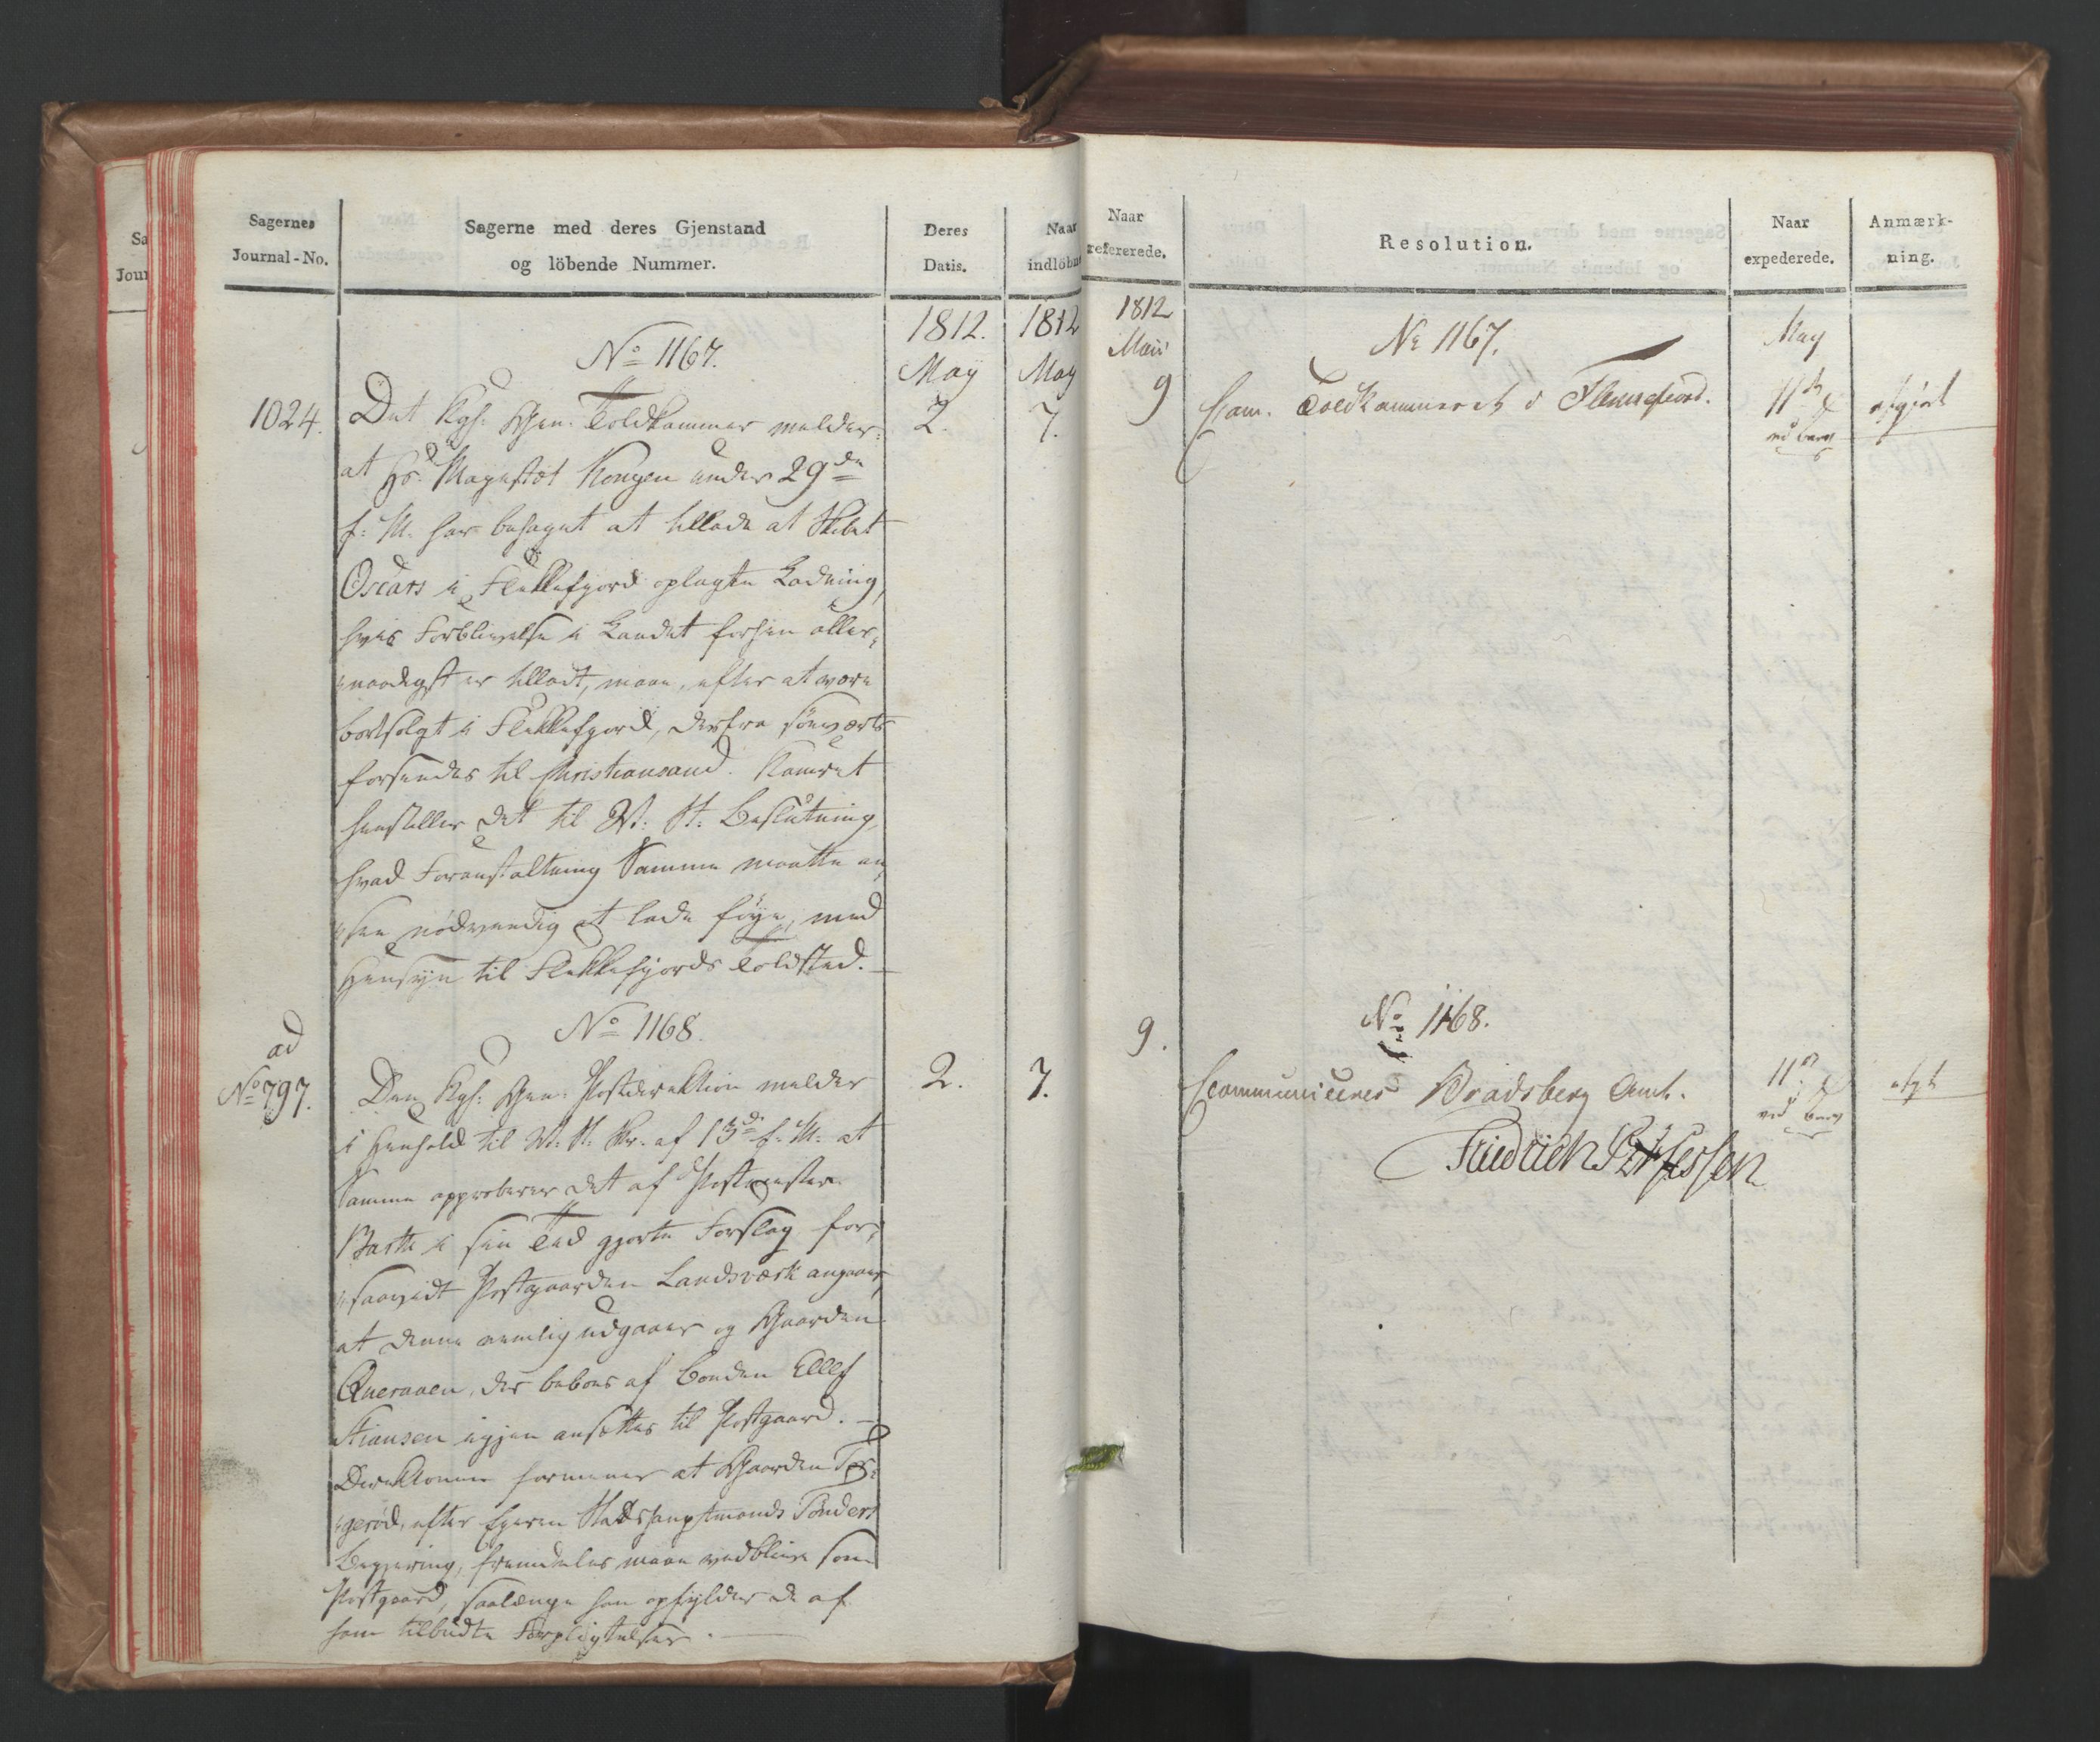 Sagernes
Journal-No.
Sagerne med deres Gjenstand
og löbende Nummer.
Deres
Datis.
Naar
indlöbne
1812. 1812
May May
No 1167.
1024. Det Kgh: Gen: Toldkammer melder: 2. 7.
at Hs: Majestæt Kongen under 29de
f: M. har behaget at tillade at Skibet
Oscars i Flekkefjord oplagte Ladning,
hvis Forblivelse i Landet forhen aller-
naadigst er tilladt, maae, efter at være
bortsolgt i Flekkefjord, derfra söeværts
forsendes til Christiansand. Kamret
henstiller det til R: K: Beslutning,
hvad Foranstaltning Samme maatte an-
see nödvendig at lade föye, med
Hensyn til Flekkefjords Toldsted. —
No 1168.
ad
No 797. Den Kgh: Gen: Postdirektion melder 2. 7.
i Henhold til R: K: Skr. af 13de f: M: at
Samme approberer det af Postmester
Barth i sin Tid gjorte Forslag for-
saavidt Postgaarden Landsværk angaaer,
at denne nemlig udgaaer og Gaarden
Queraaen, der beboes af Bonden Ellef
Stiansen igjen ansættes til Postgaard. —
Direktionen formener at Gaarden
geröd, efter Eyeren Stadshauptmands Tönders
Begjering, fremdeles maae vedblive som
Postgaard, saalænge han opfylder de af
ham tilbudte Forpligtelser. —
Naar
refererede.
Resolution.
Naar
expederede.
Anmærk-
ning.
1812
Maii
No 1167.
May
9 Com. Toldkammeret i 11te afgjort
ved Brev
No 1168.
9. Communiceres Bradsberg Amt. 11te afgt
ved Brev
Friedrich